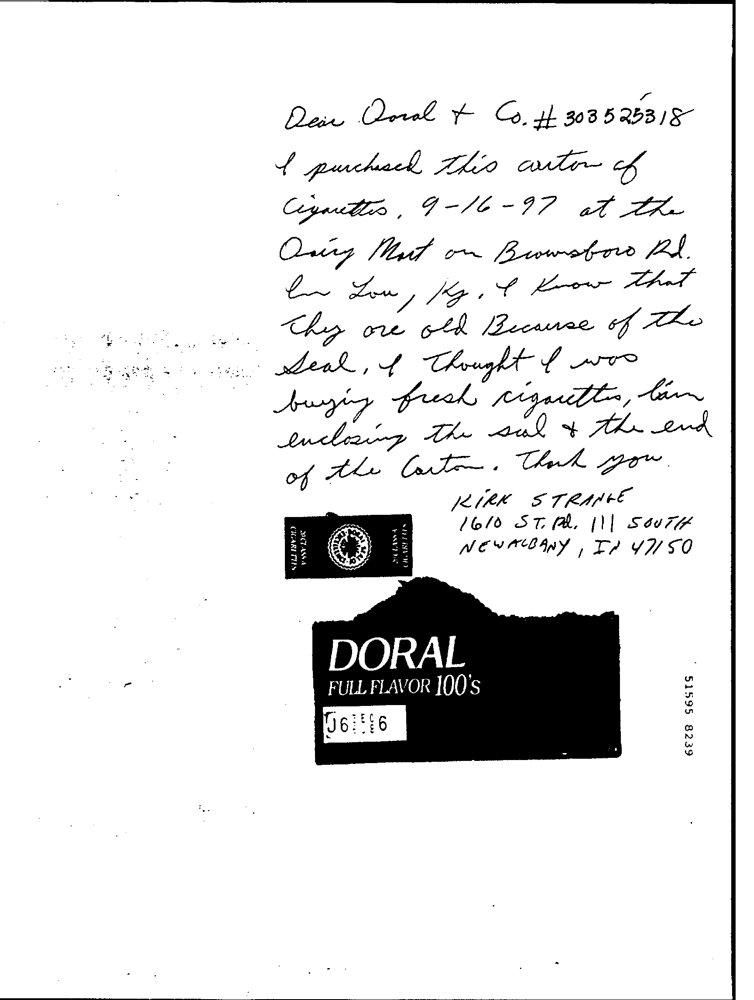 Dear Doral + Co. # 303525318
I purchased this carton of
Cigarettes, 9-16-97 at the
Dairy Mart on Brownsboro Rd.
In Lou, Ky. I Know that
they are old Because of the
seal, I thought I was
buying fresh cigarettes, I am
enclosing the seal & the end
of the Carton. Thank you.
KIRK STRANGE
1610 ST. Rd. 111 SOUTH
NEW ALBANY, IN 47150
CLASS A
CIGARETTES
CLASS A
CIGARETTES
DORAL
FULL FLAVOR 100's
51595 8239